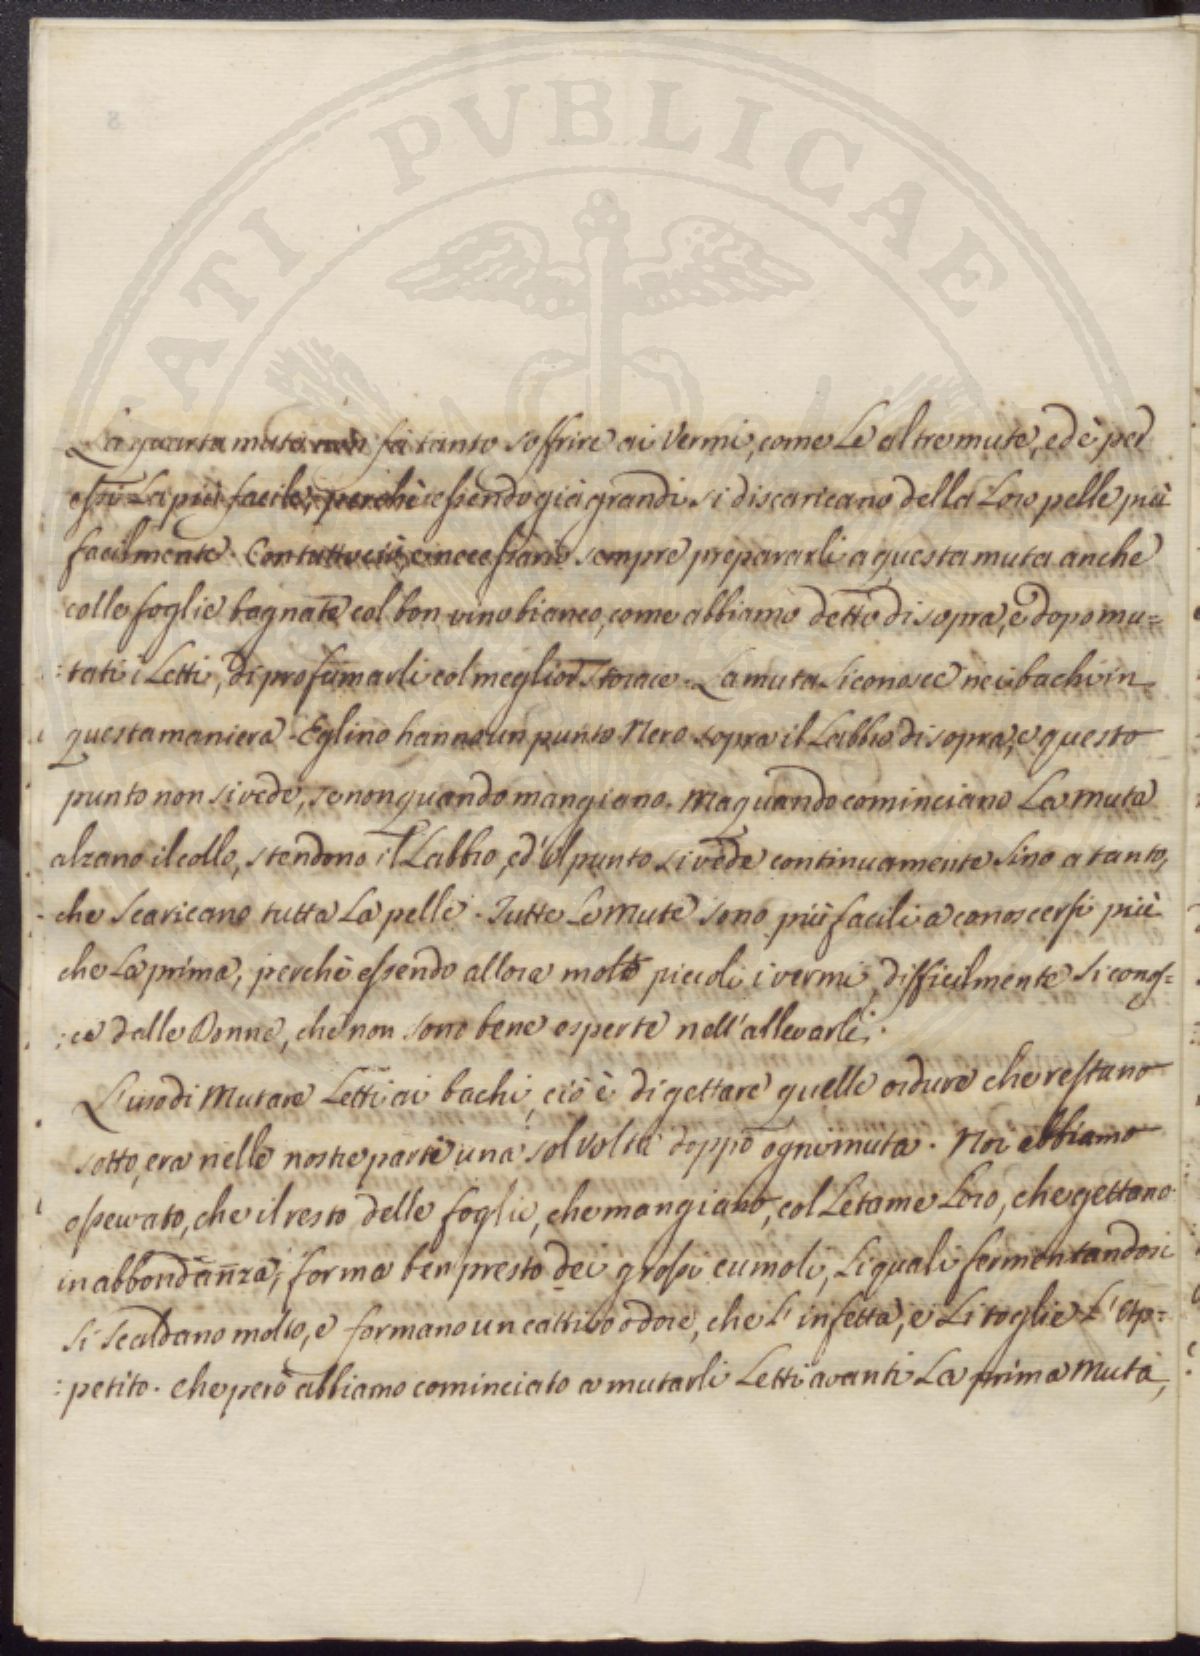 PVBLICAE
ATI
La quarta muta non fà tanto soffrire ai Vermi, come Le altre mute, ed è per
essi La più facile, perchè essendo già grandi si discaricano della Loro pelle più
facilmente. Con tutto ciò, è necessario sempre prepararli a questa muta anche
colle foglie bagnate col bon vino bianco, come abbiamo detto di sopra, e dopo mu=
:tati i Letti, di profumarli col meglior Storace. La muta si conosce nei bachi in
questa maniera. Eglino hanno un punto Nero sopra il Labbro di sopra, e questo
punto non si vede, se non quando mangiano. Ma quando cominciano La Muta
alzano il collo, stendono il Labbro, ed il punto si vede continuamente sino a tanto,
che Scaricano tutta La pelle. Tutte Le Mute sono più facili a conoscersi più
che La prima, perchè essendo allora molto piccoli i vermi, difficilmente si conos=
:ce dalle Donne, che non sono bene esperte nell'allevarli.
L'uso di Mutare Letti ai bachi, ciò è di gettare quelle ordure che restano
sotto, era nelle nostre parti una sol Volta doppo ogni muta. Noi abbiamo
osservato, che il resto delle foglie, che mangiano, col Letame Loro, che gettano
in abbondanza, forma ben presto dei grossi cumoli, Li quali fermentandosi
si Scaldano molto, e formano un cattivo odore, che L'infetta, e Li toglie L'Ap=
:petito. Che però abbiamo cominciato a mutarli Letti avanti La prima Muta,